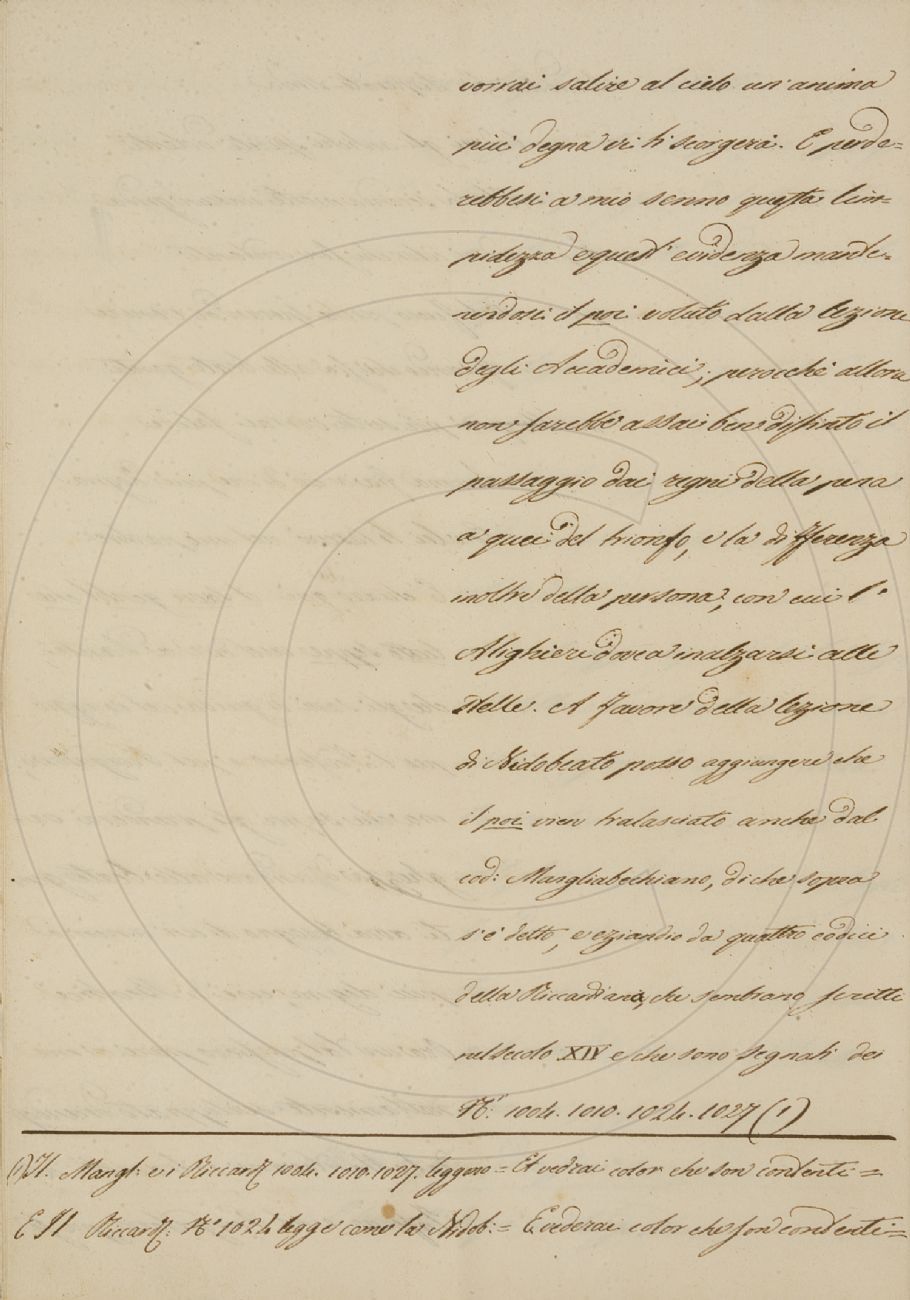 vorrai salire al cielo un'anima
più degna vi ti scorgerà. E perde=
rebbesi a mio senno questa lim=
pidezza e quest' evidenza mante=
nendosi il poi voluto dalla lezione
degli Accademici; perocchè allora
non sarebbe assai ben distinto il
passaggio dai regni della pena
a quei del trionfo, e la differenza
inoltre della persona, con cui l'
Alighieri dovea inalzarsi alle
stelle. A favore della lezione
di Nidobeato posso aggiungere che
il poi vien tralasciato anche dal
cod: Margliabechiano, di che sopra
s'è detto, e eziandio da quattro codici
della Riccardiana, che sembrano scritti
nel secolo XIV e che sono segnati dei
Nⁱ: 1004. 1010. 1024. 1027 (1)
(1) Il Mangl: e i Riccard: 1004. 1010. 1027. leggono = Et vedrai color che son contenti =
E Il Riccard: Nº 1024 legge come la Nidob: = E vederai color che son contenti =